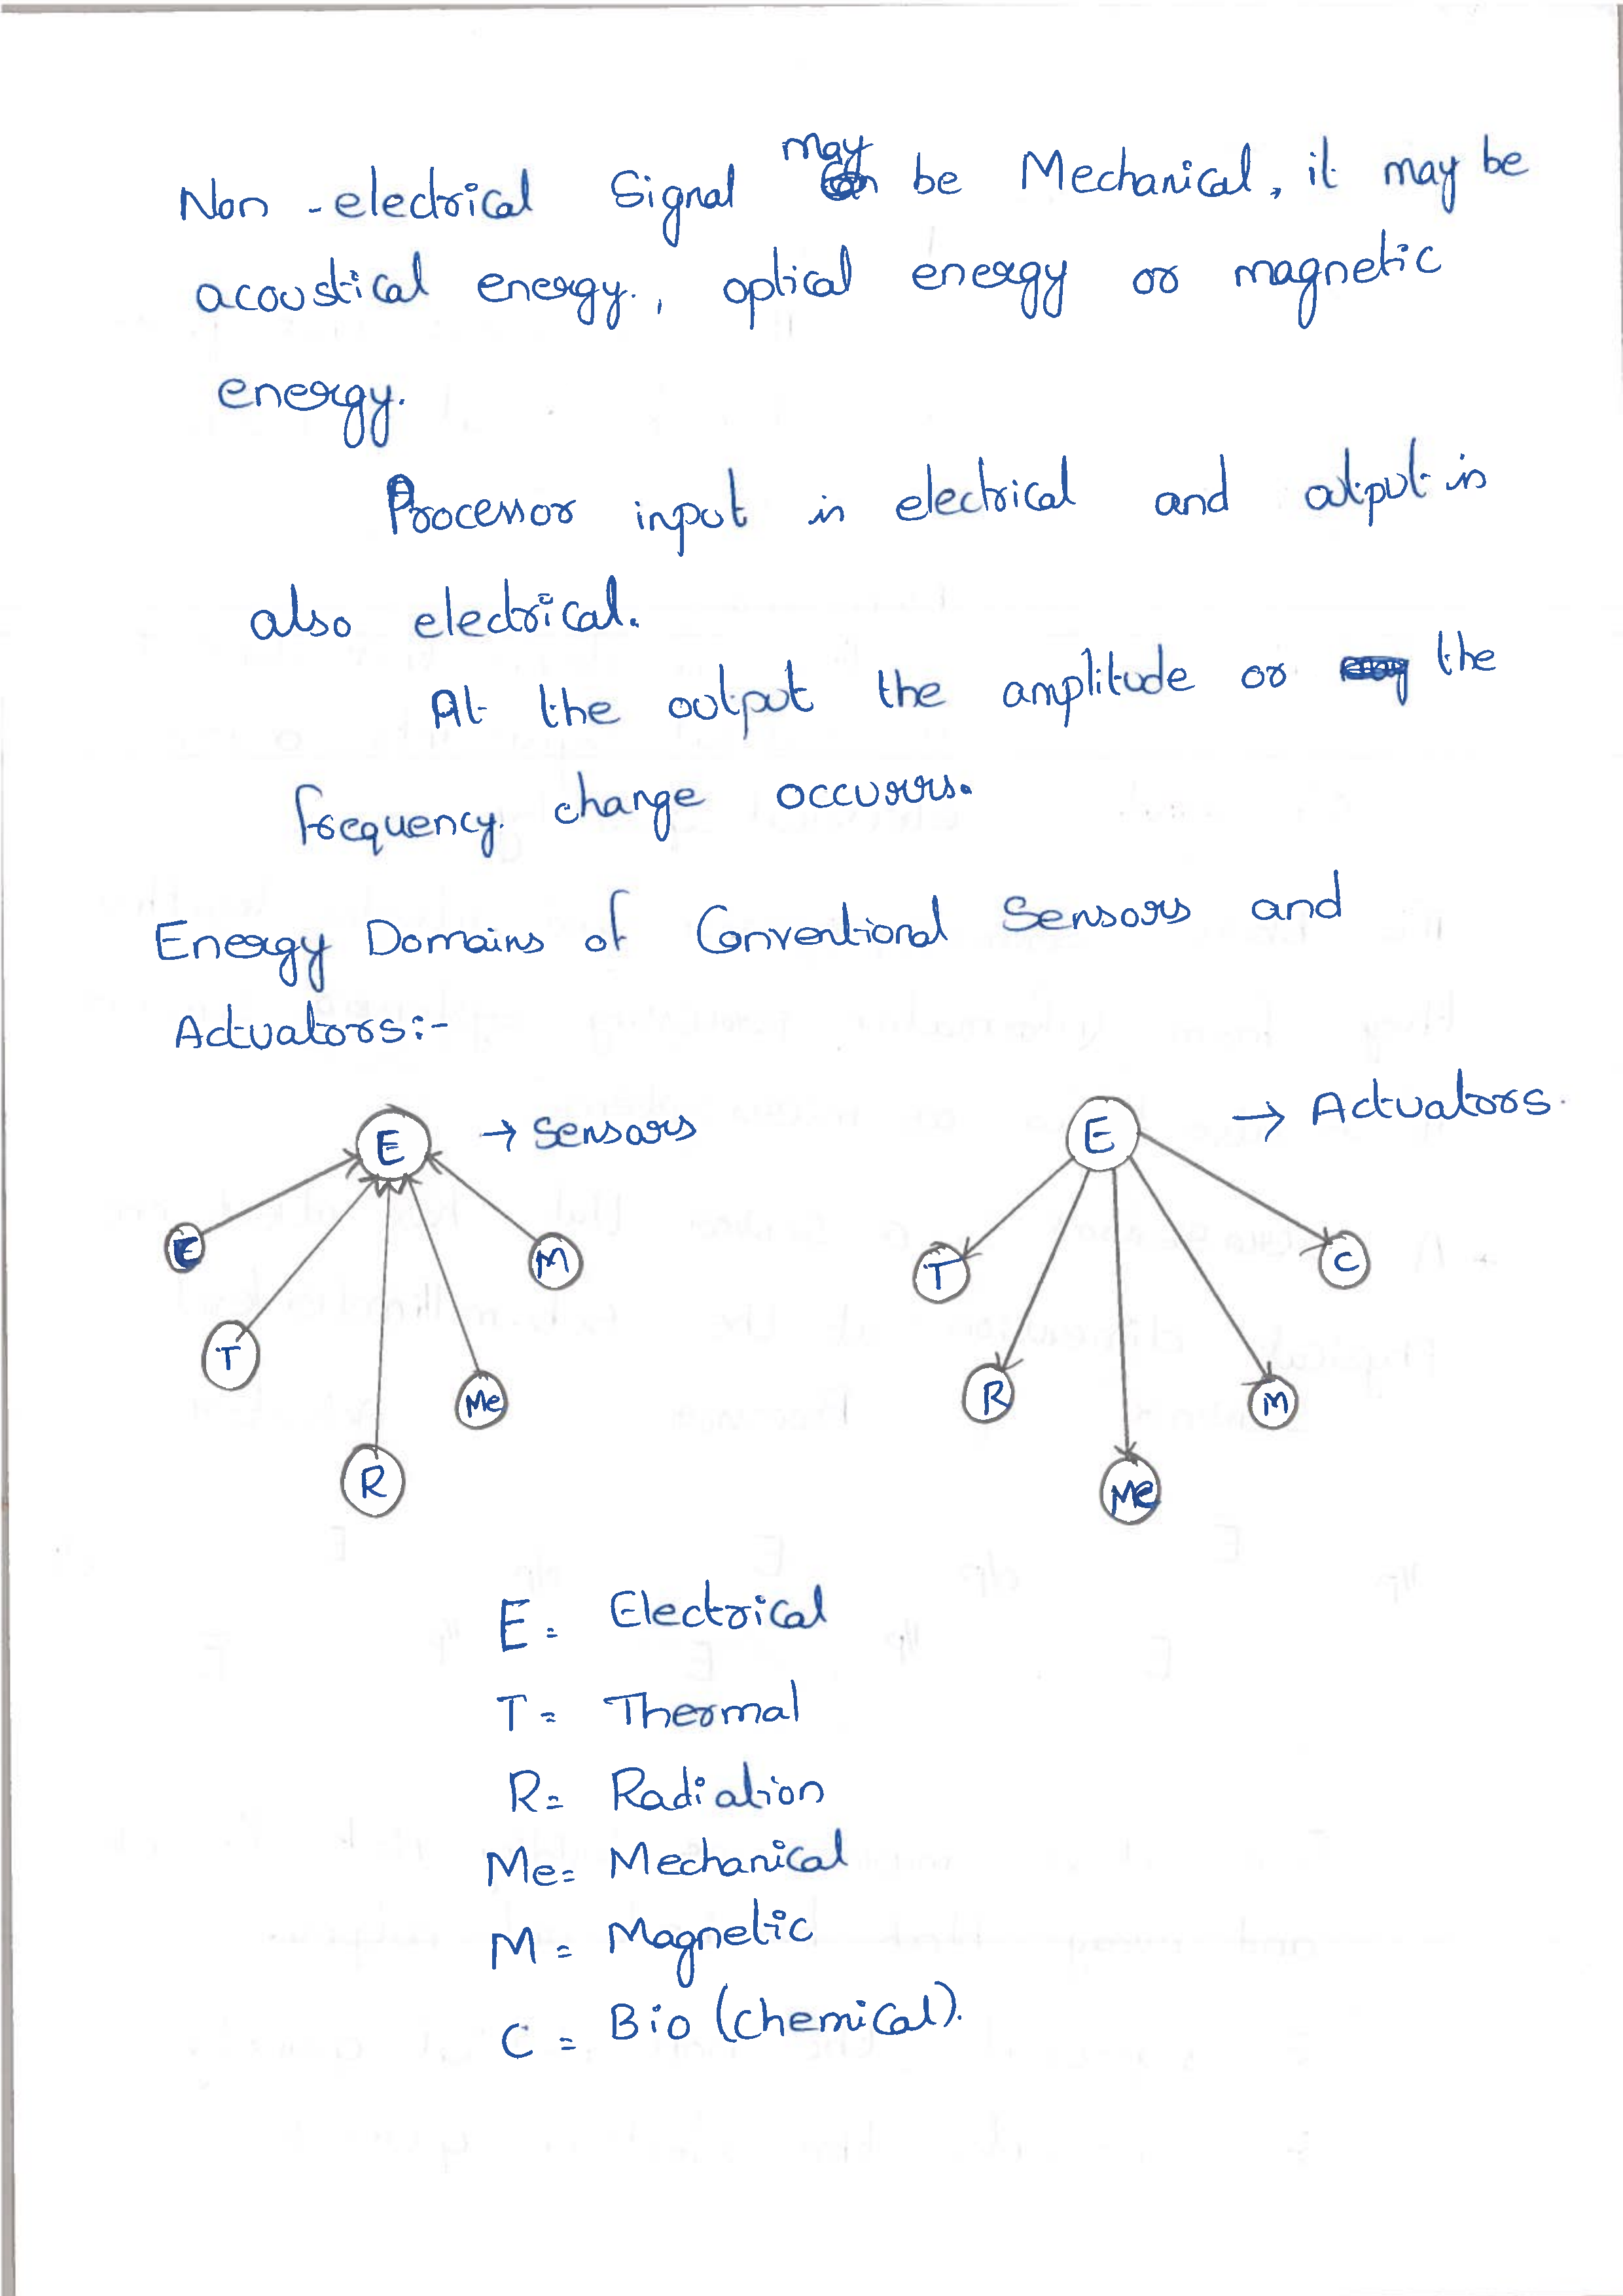 Non-electrical Signal may be Mechanical, it may be
acoustical energy., optical energy or magnetic
energy.
Processor input is electrical and output is
also electrical.
At the output the amplitude or the
frequency. change occurrs.
Energy Domains of Conventional Sensors and
Actuators:-
E → Sensors
E → Actuators.
M
T
C
T
Me
R
M
R
Me
E = Electrical
T = Thermal
R = Radiation
Me = Mechanical
M = Magnetic
C = Bio (chemical).